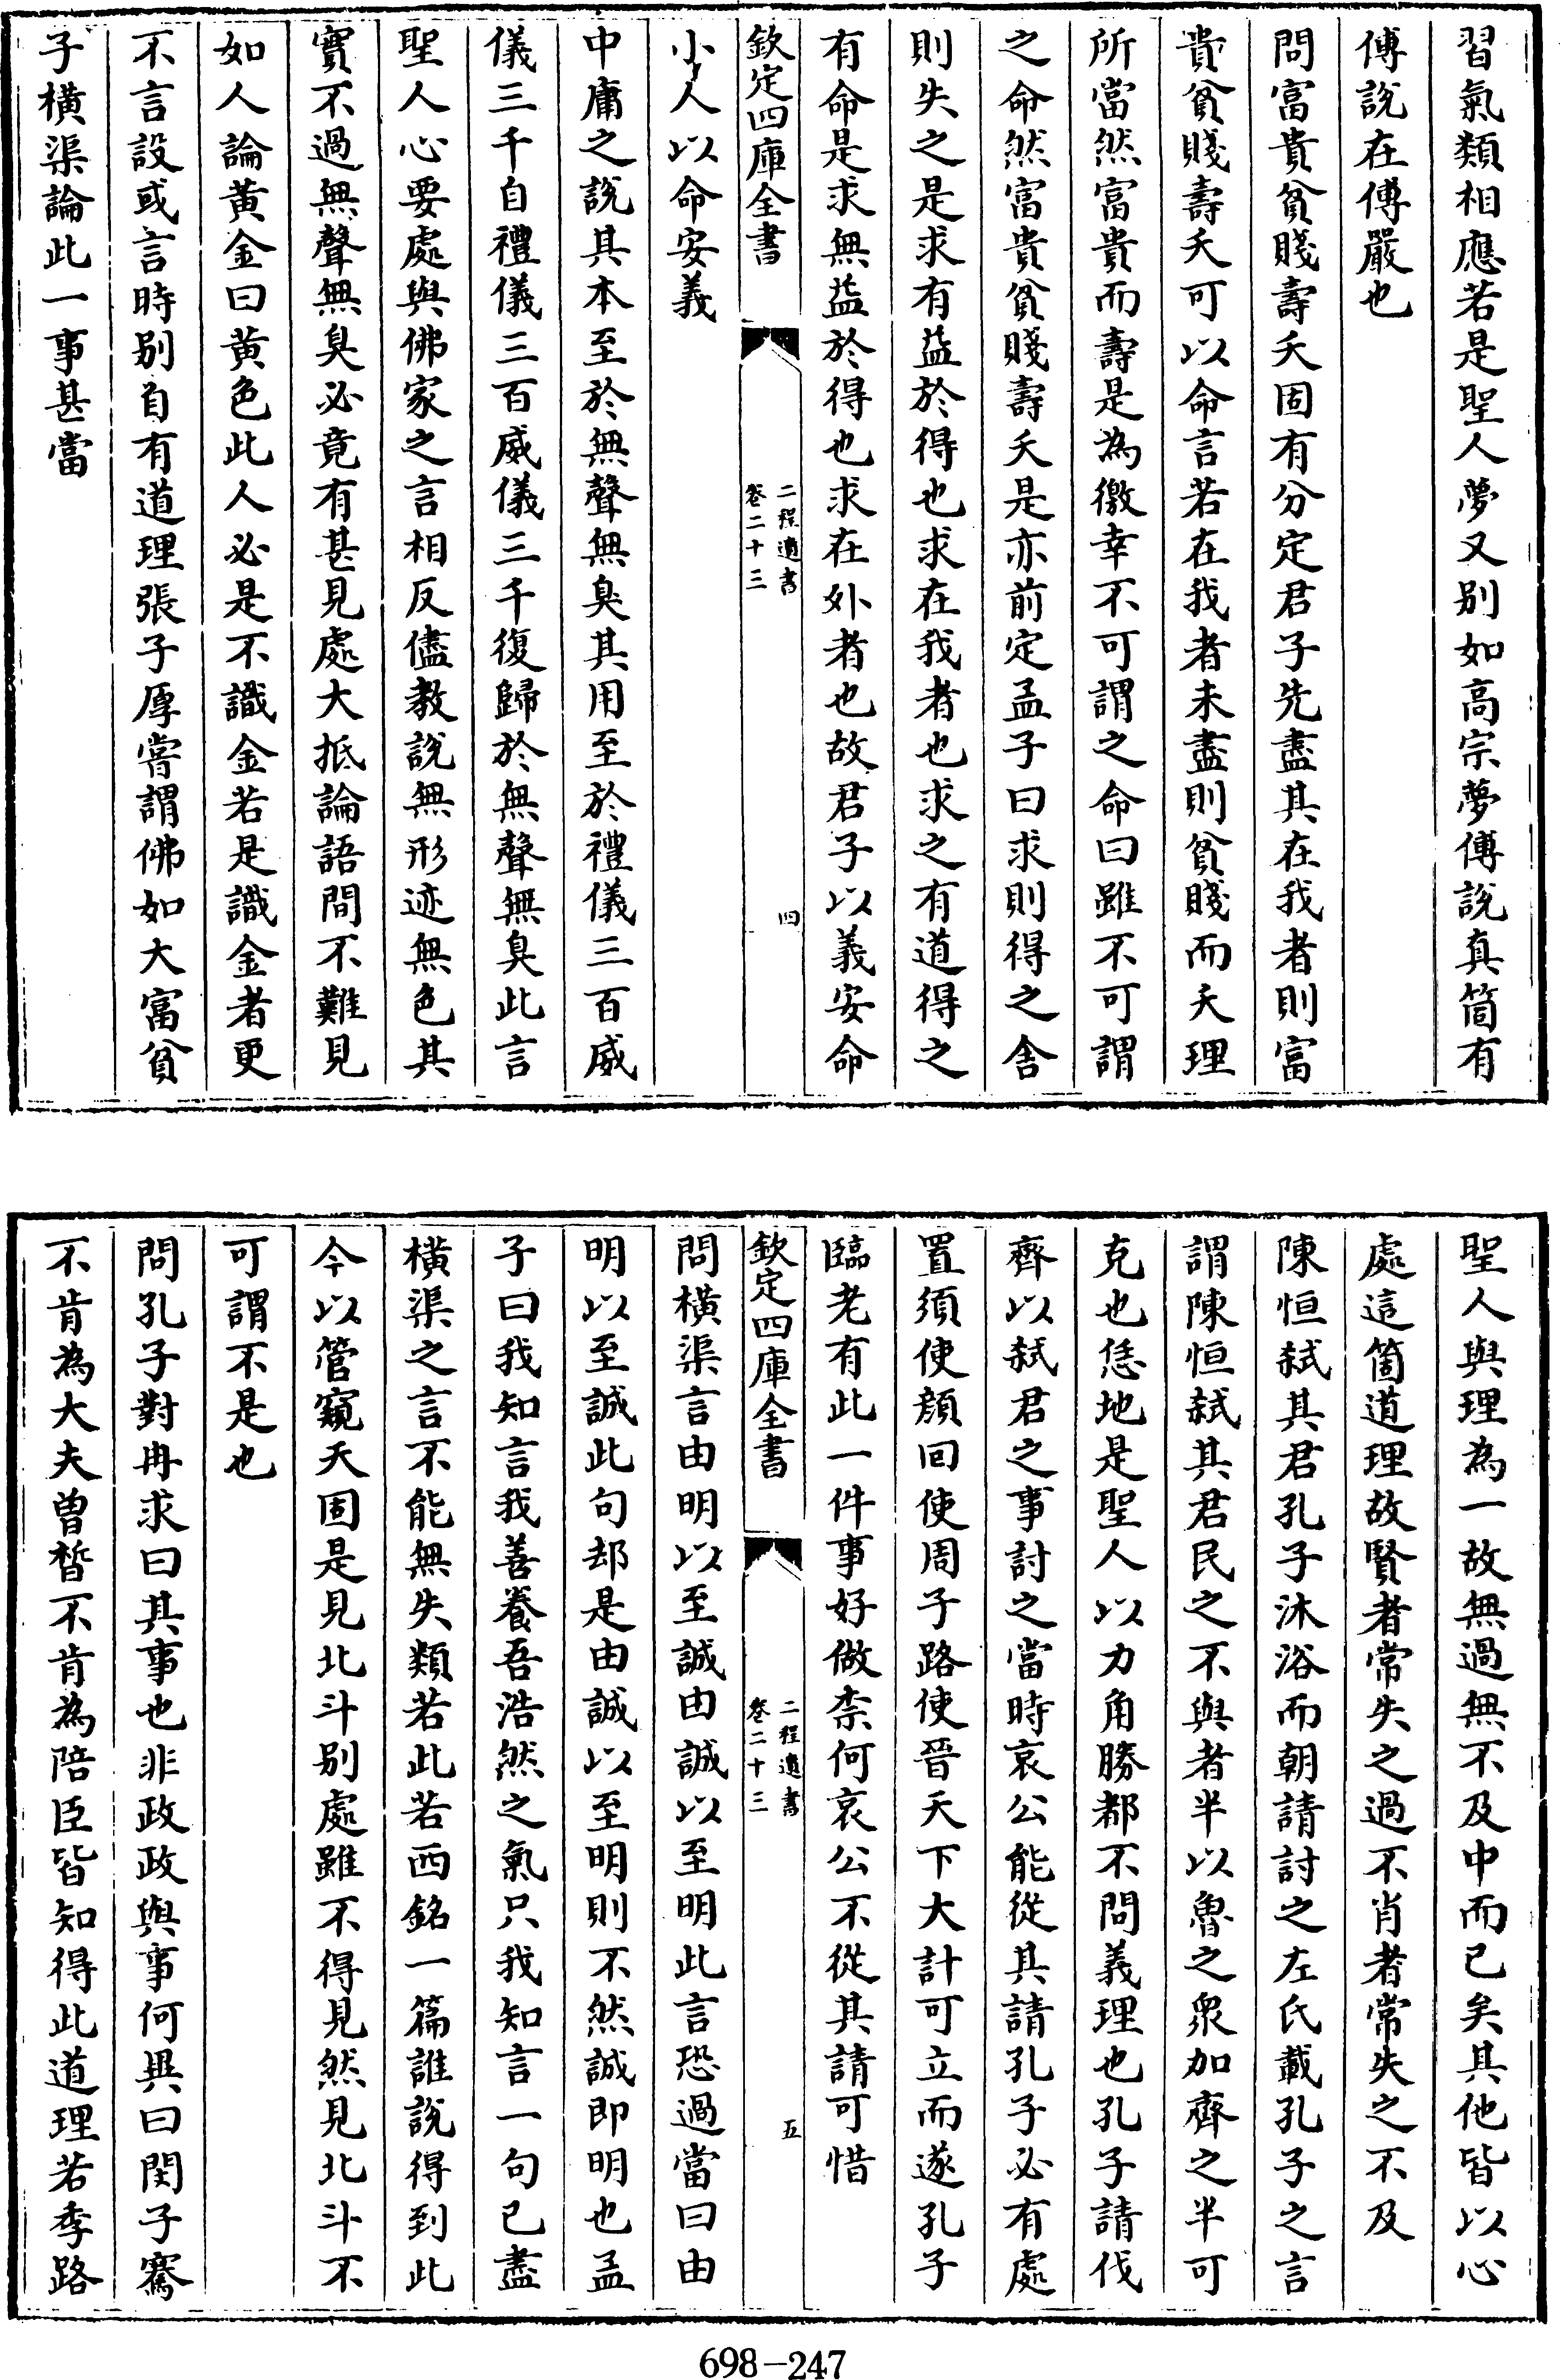 習氣類相應若是聖人夢又别如高宗夢傅說真箇有
傅說在傅嚴也
問富貴貧賤壽夭固有分定君子先盡其在我者則富
貴貧賤壽夭可以命言若在我者未盡則貧賤而夭理
所當然富貴而壽是為徼幸不可謂之命曰雖不可謂
之命然富貴貧賤壽夭是亦前定孟子曰求則得之舍
則失之是求有益於得也求在我者也求之有道得之
有命是求無益於得也求在外者也故君子以義安命
欽定四庫全書
二程遺書
卷二十三
四
小人以命安義
中庸之說其本至於無聲無臭其用至於禮儀三百威
儀三千自禮儀三百威儀三千復歸於無聲無臭此言
聖人心要處與佛家之言相反儘教說無形迹無色其
實不過無聲無臭必竟有甚見處大抵論語間不難見
如人論黄金曰黄色此人必是不識金若是識金者更
不言設或言時别自有道理張子厚嘗謂佛如大富貧
子橫渠論此一事甚當
聖人與理為一故無過無不及中而已矣其他皆以心
處這箇道理故賢者常失之過不肖者常失之不及
陳恒弑其君孔子沐浴而朝請討之左氏載孔子之言
謂陳恒弑其君民之不與者半以魯之衆加齊之半可
克也恁地是聖人以力角勝都不問義理也孔子請伐
齊以弑君之事討之當時哀公能從其請孔子必有處
置須使顔回使周子路使晉天下大計可立而遂孔子
臨老有此一件事好做柰何哀公不從其請可惜
欽定四庫全書
二程遺書
卷二十三
五
問橫渠言由明以至誠由誠以至明此言恐過當曰由
明以至誠此句却是由誠以至明則不然誠即明也孟
子曰我知言我善養吾浩然之氣只我知言一句已盡
橫渠之言不能無失類若此若西銘一篇誰說得到此
今以管窺天固是見北斗别處雖不得見然見北斗不
可謂不是也
問孔子對冉求曰其事也非政政與事何異曰閔子騫
不肯為大夫曾晳不肯為陪臣皆知得此道理若季路
698-247